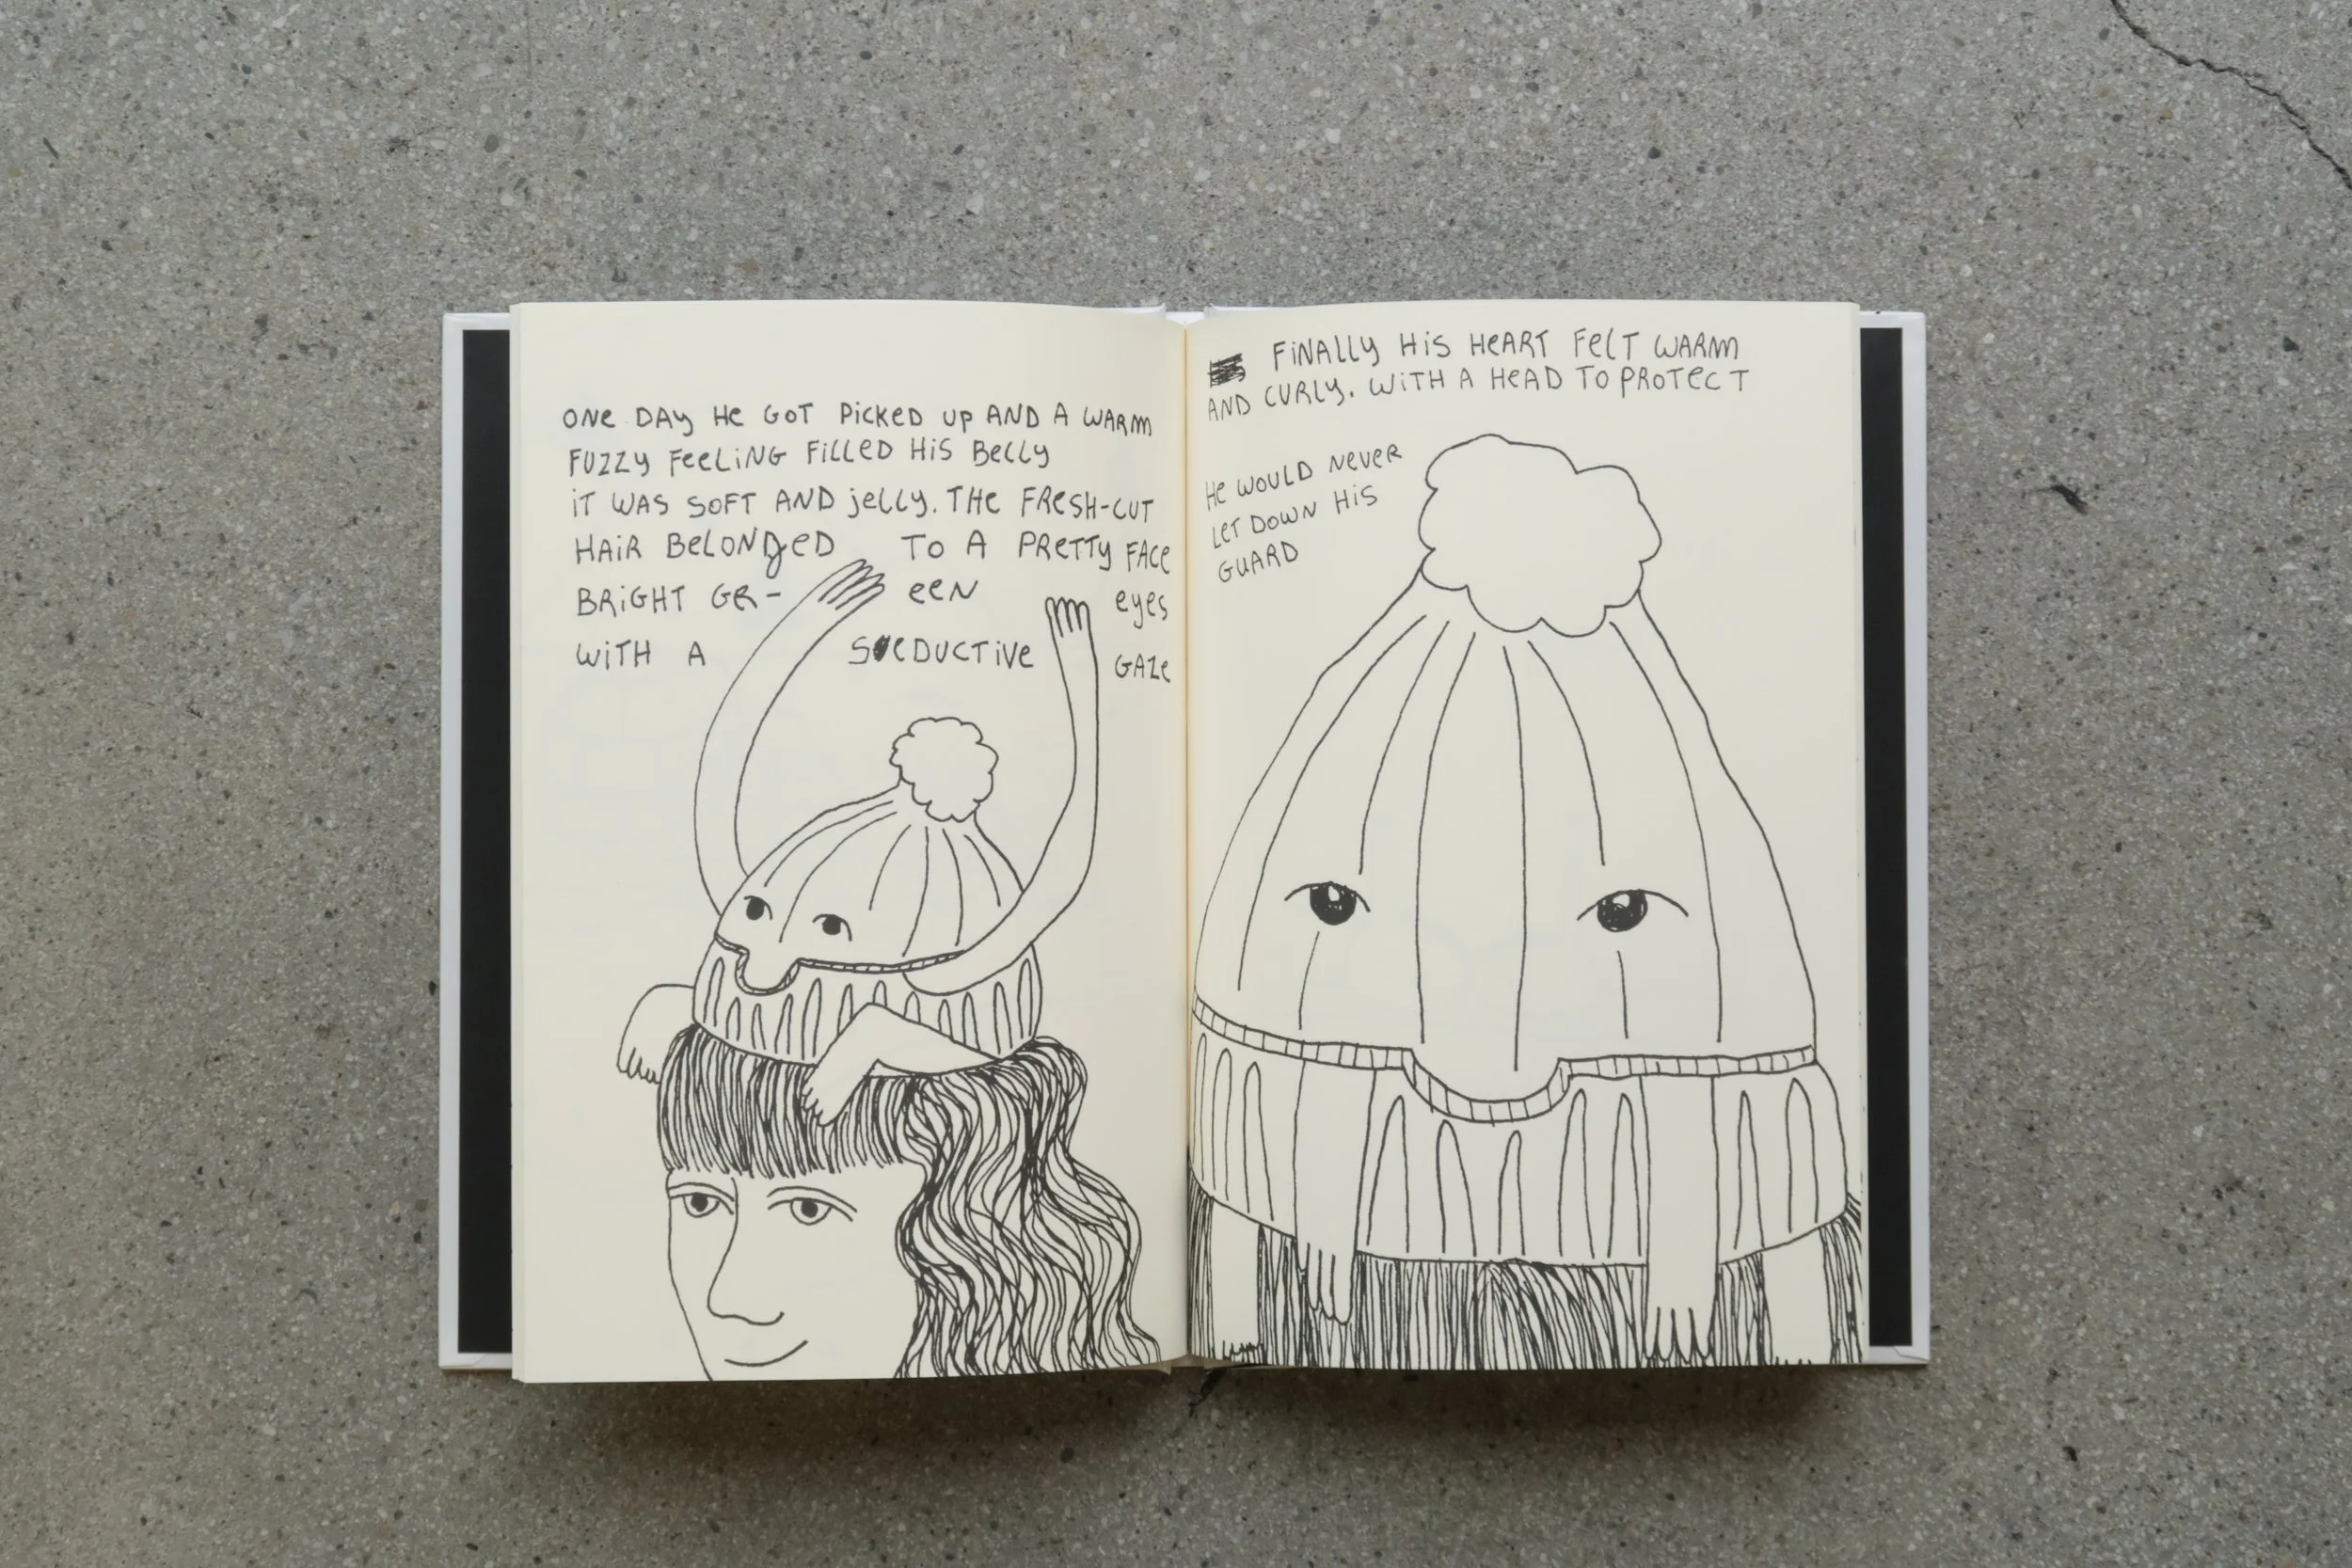 ONE DAY HE GOT PICKED UP AND A WARM
FUZZY FEELING FILLED HIS BELLY
IT WAS SOFT AND JELLY. THE FRESH-CUT
HAIR BELONGED TO A PRETTY FACE
BRIGHT GR-EEN EYES
WITH A SEDUCTIVE GAZE
FINALLY HIS HEART FELT WARM
AND CURLY. WITH A HEAD TO PROTECT
HE WOULD NEVER
LET DOWN HIS
GUARD